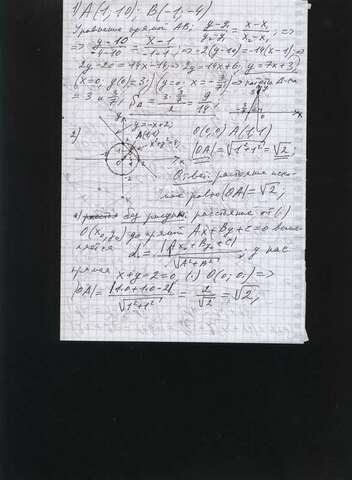 1) A(1, 10); B(-1, -4)
Уравнение прямой AB; (y-y₁)/(y₂-y₁) = (x-x₁)/(x₂-x₁); =>
=> (y-10)/(-4-10) = (x-1)/(-1-1); => -2(y-10) = -14(x-1); =>
2y-20 = 14x-14 => 2y = 14x+6; y = 7x+3;
(x=0, y(0)=3;) (y=0; x=-3/7;) =>
= 3 и 3/7; S_Δ = (3·3/7)/2 = 9/14;
2)
y=-x+2;
A(1;1)
O(0,0) A(1;1)
|OA| = √(1²+1²) = √2;
Ответ: расстояние
равно |OA| = √2;
расстояние от (·)
O(x₀,y₀) до прямой Ax+By+C=0
d = |Ax₀+By₀+C|/√(A²+B²); у нас
прямая x+y-2=0 (·) O(0;0) =>
|OA| = |1·0+1·0-2|/√(1²+1²) = 2/√2 = √2;